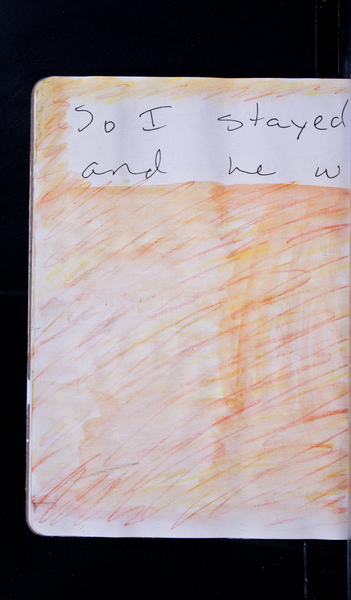 So I stayed
and he w